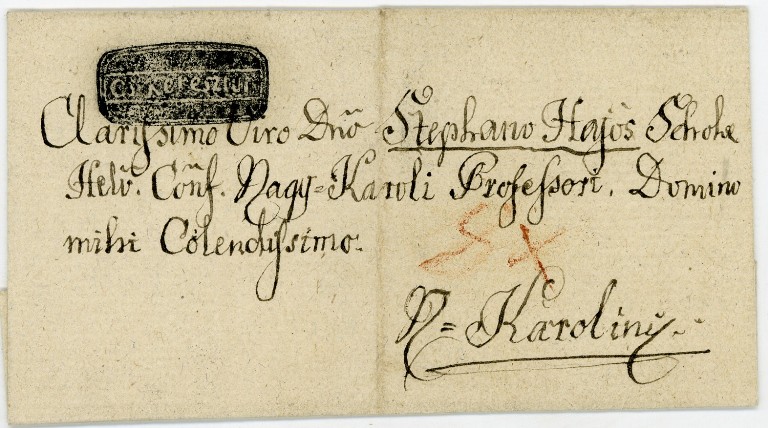 Cs: Keresztur
Clarissimo Viro Dnō Stephano Hajós Scholæ
Helv. Conf. Nagy=Karoli Professori. Domino
mihi Colendissimo.
5x
N=Karoliny